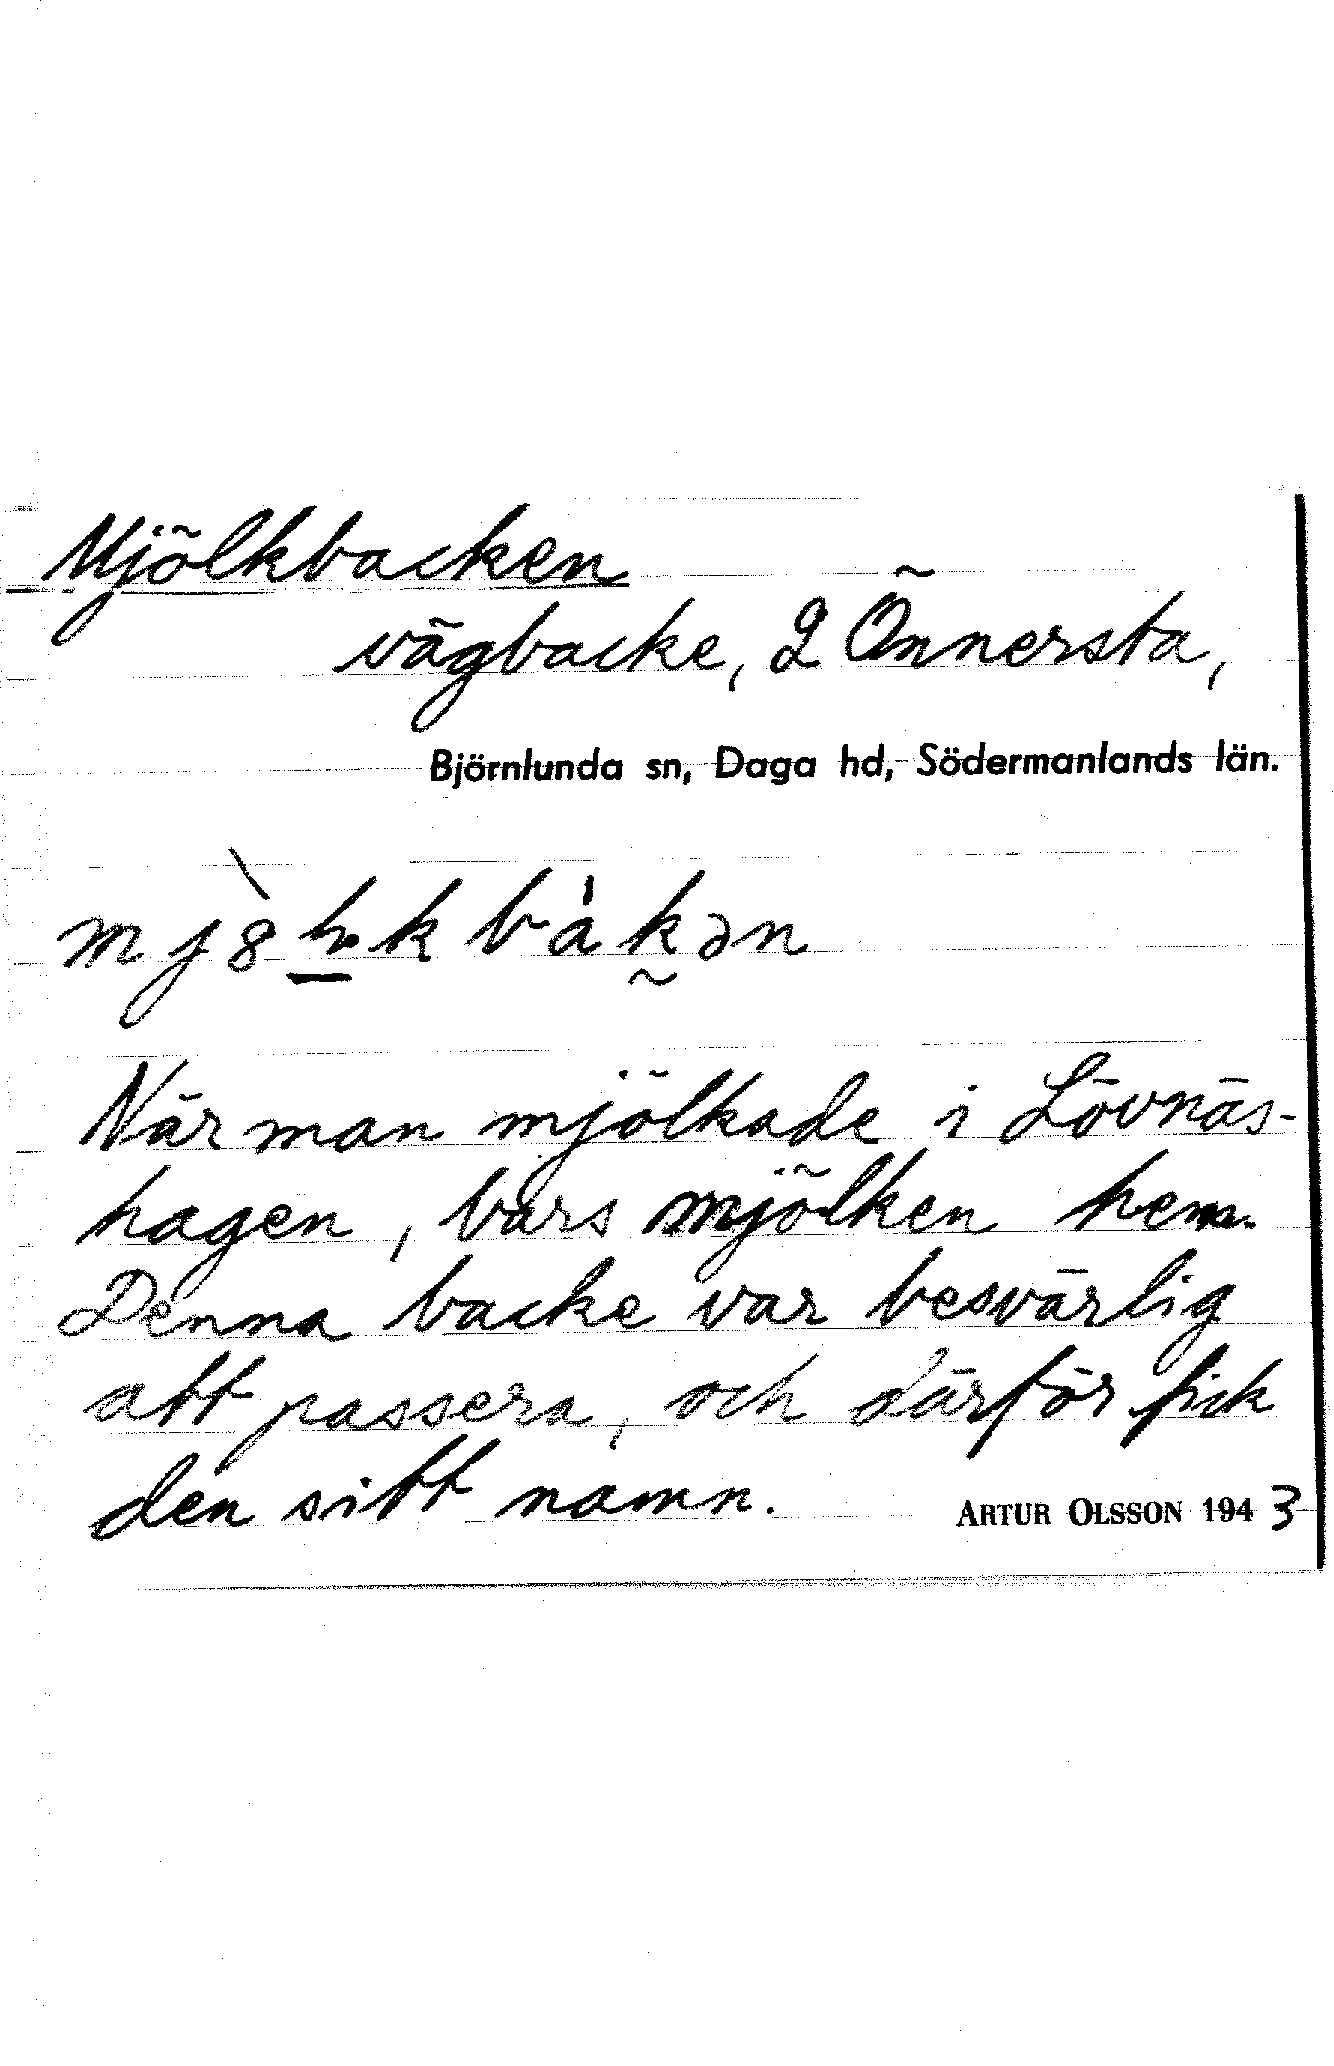 Mjölkbacken
vägbacke, 2 Önnersta,
Björnlunda sn, Daga hd, Södermanlands län.
När man mjölkade i Lövnäs-
hagen, bars mjölken hem.
Denna backe var besvärlig
att passera, och därför fick
den sitt namn. ARTUR OLSSON 1943